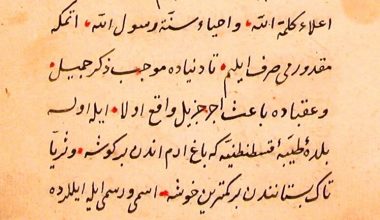 اعلاء كلمة الله، و احياء سنّة رسول الله، اتمكه
مقدورمی صرف ایلیم، تا دنیاده موجب ذکر جمیل،
و عقباده باعث اجر جزیل واقع اولا، ایله اوله
بلدهٔ طیّبهٔ قسطنطنیّه که باغ ارم اندن بر کوشه، و ثریّا
تاك بستانندن بر کمترین خوشه، اسمی و رسمی ایله ایللرده